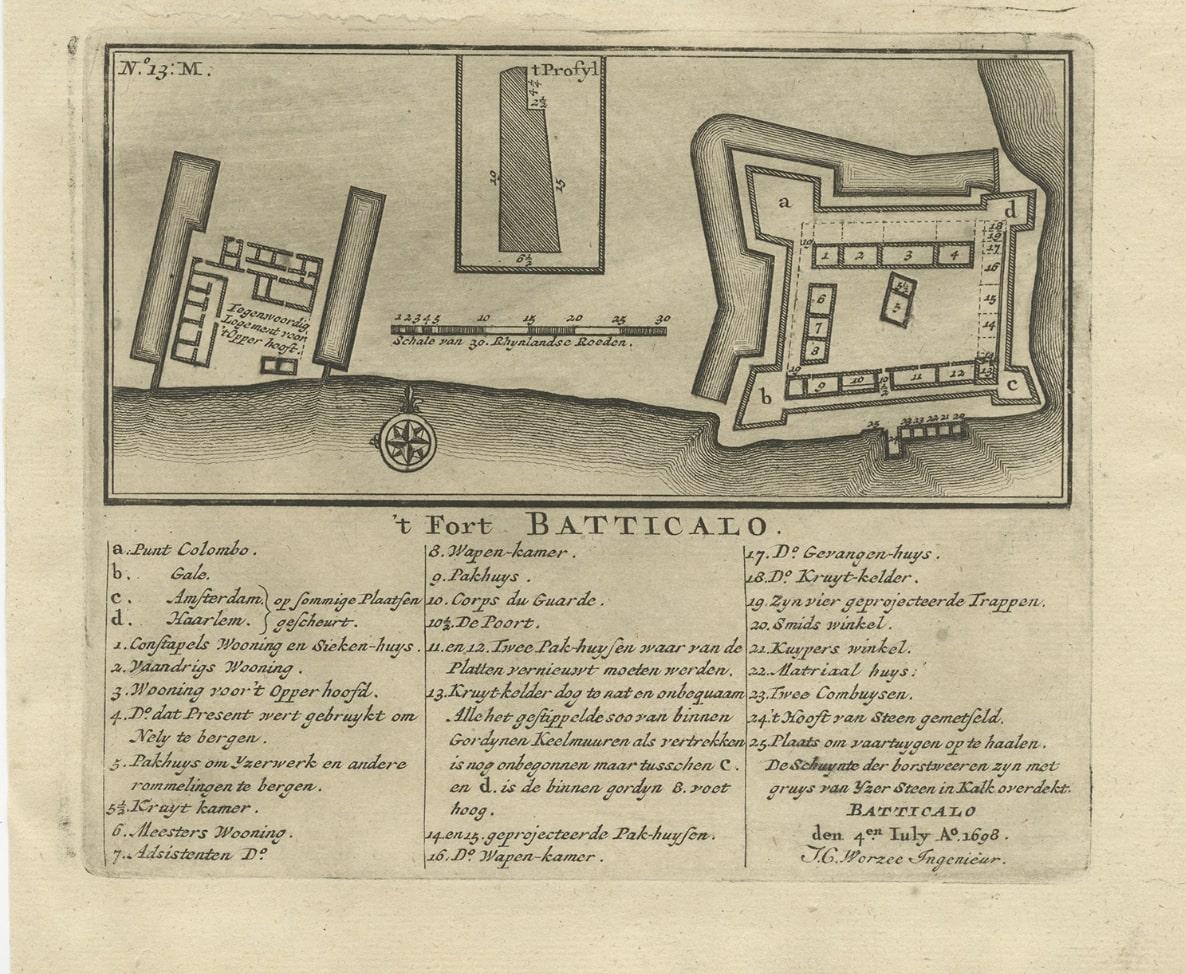 N.º 13: M.
't Profyl
4 4
2½
10
15
6½
Tegenwoordig
Logement voor
't Opper hooft.
1 2 3 4 5 10 15 20 25 30
Schale van 30. Rhynlandse Roeden.
a
d
18
19
19
17
1 2 3 4
16
5½
5
6
15
7
14
8
19
14
13
9 10 10½ 11 12
b
c
25
24
23 23 22 21 20
't Fort BATTICALO.
a. Punt Colombo.
b. Gale.
c. Amsterdam. } op sommige Plaatsen
d. Haarlem. } gescheurt.
1. Constapels Wooning en Sieken-huys.
2. Vaandrigs Wooning.
3. Wooning voor 't Opper hoofd.
4. Dº dat Present wert gebruykt om
Nely te bergen.
5. Pakhuys om Yzerwerk en andere
rommelingen te bergen.
5½ Kruyt kamer.
6. Meesters Wooning.
7. Adsistenten Dº
8. Wapen-kamer.
9. Pakhuys.
10. Corps du Guarde.
10½. De Poort.
11. en 12. Twee Pak-huysen waar van de
Platten vernieuwt moeten werden.
13. Kruyt-kelder dog te nat en onbequaam
Alle het gestippelde soo van binnen
Gordynen Keelmuuren als vertrekken
is nog onbegonnen maar tusschen c.
en d. is de binnen gordyn 8. voet
hoog.
14. en 15. geprojecteerde Pak-huysen.
16. Dº Wapen-kamer.
17. Dº Gevangen-huys.
18. Dº Kruyt-kelder.
19. Zyn vier geprojecteerde Trappen.
20. Smids winkel.
21. Kuypers winkel.
22. Matriaal huys.
23. Twee Combuysen.
24. 't Hooft van Steen gemetseld.
25. Plaats om vaartuygen op te haalen.
De Schuynte der borstweeren zyn met
gruys van Yzer Steen in Kalk overdekt.
BATTICALO
den 4en Iuly Aº. 1698.
J. C. Worzee Ingenieur.